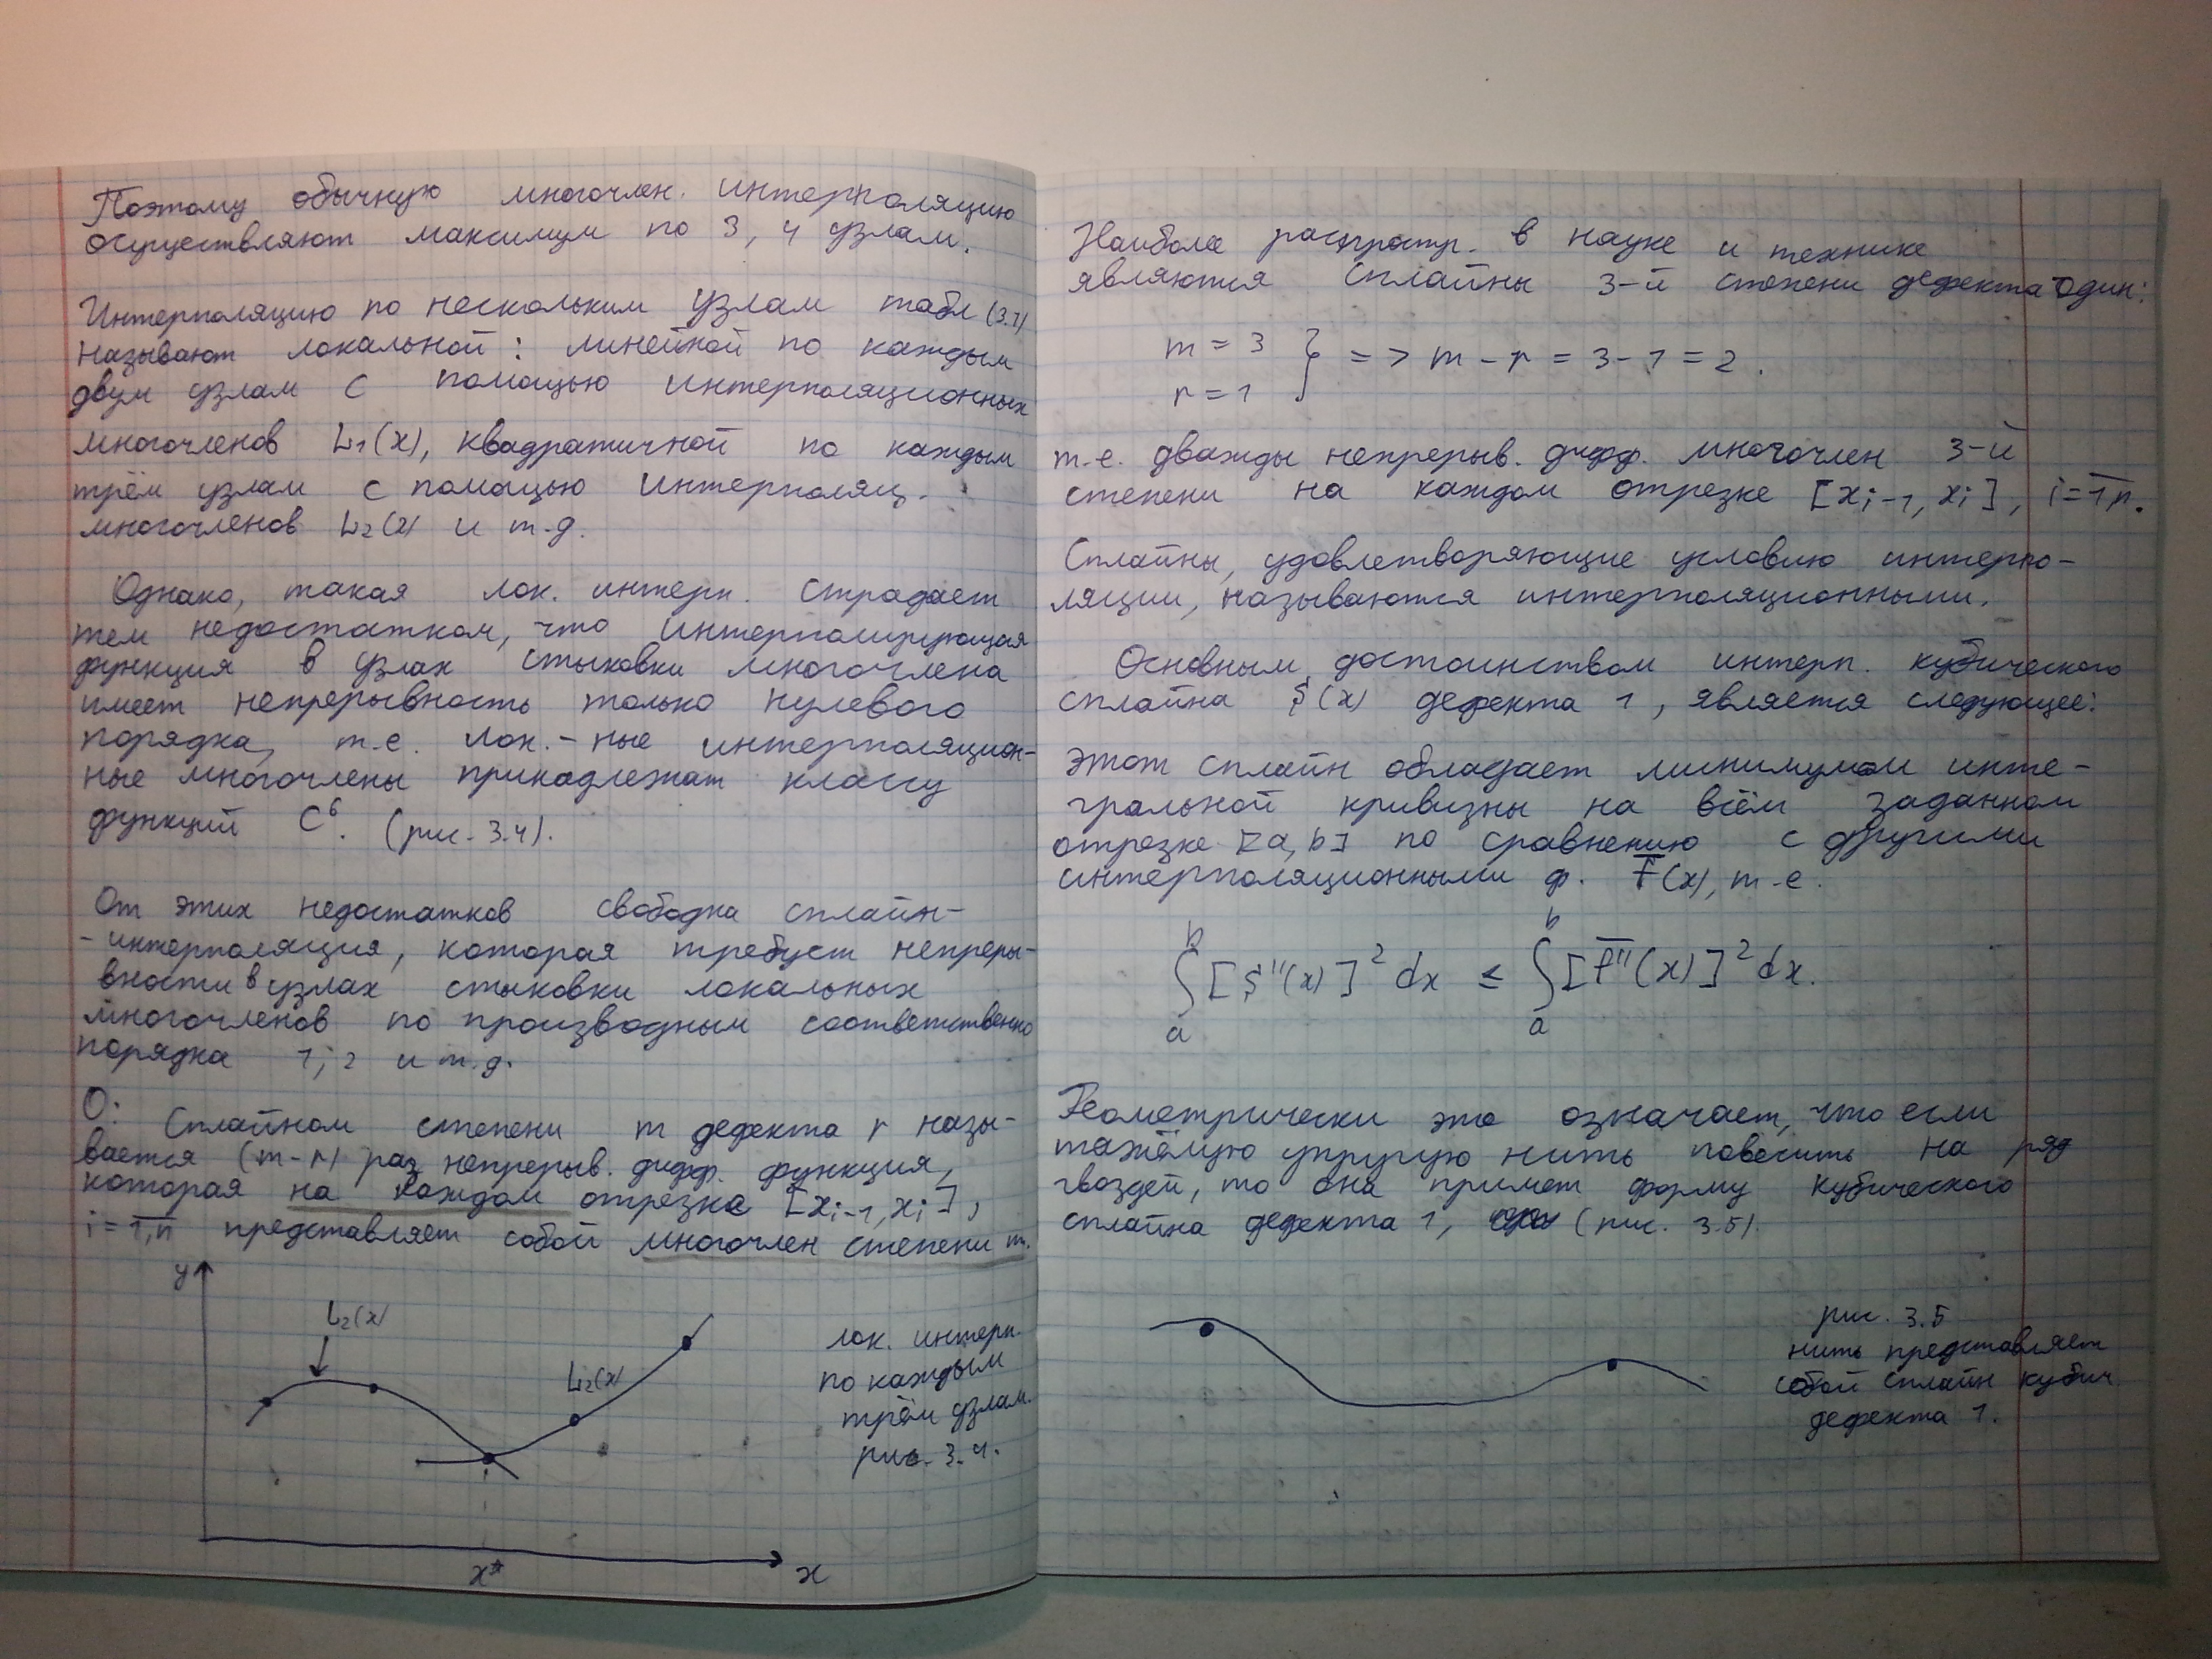 Поэтому обычную многочлен. интерполяцию
осуществляют максимум по 3, 4 узлам.
Интерполяцию по нескольким узлам табл (3.1)
называют локальной: линейной по каждым
двум узлам с помощью интерполяционных
многочленов L₁(x), квадратичной по каждым
трём узлам с помощью интерполяц.
многочленов L₂(x) и т.д.
Однако, такая лок. интерп. страдает
тем недостатком, что интерполирующая
функция в узлах стыковки многочлена
имеет непрерывность только нулевого
порядка, т.е. лок.-ные интерполяцион-
ные многочлены принадлежат классу
функций C⁰. (рис. 3.4).
От этих недостатков свободна сплайн-
-интерполяция, которая требует непреры-
вности в узлах стыковки локальных
многочленов по производным соответственно
порядка 1, 2 и т.д.
О: Сплайном степени m дефекта r назы-
вается (m-r) раз непрерыв. дифф. функция,
которая на каждом отрезке [xᵢ₋₁, xᵢ],
i=1,n представляет собой многочлен степени m.
y
L₂(x)
L₂(x)
x*
x
лок. интерп.
по каждым
трём узлам.
рис. 3.4.
Наиболее распростр. в науке и технике
являются сплайны 3-й степени дефекта один:
m = 3
r = 1
} => m - r = 3 - 1 = 2.
т.е. дважды непрерыв. дифф. многочлен 3-й
степени на каждом отрезке [xᵢ₋₁, xᵢ], i=1,n.
Сплайны, удовлетворяющие условию интерпо-
ляции, называются интерполяционными.
Основным достоинством интерп. кубического
сплайна S(x) дефекта 1, является следующее:
этот сплайн обладает минимумом инте-
гральной кривизны на всём заданном
отрезке [a, b] по сравнению с другими
интерполяционными ф. f̅(x), т.е.
∫ₐᵇ [S''(x)]² dx ≤ ∫ₐᵇ [f̅''(x)]² dx.
Геометрически это означает, что если
тяжёлую упругую нить повесить на ряд
гвоздей, то она примет форму кубического
сплайна дефекта 1, (рис. 3.5).
рис. 3.5
нить представляет
собой сплайн кубич.
дефекта 1.